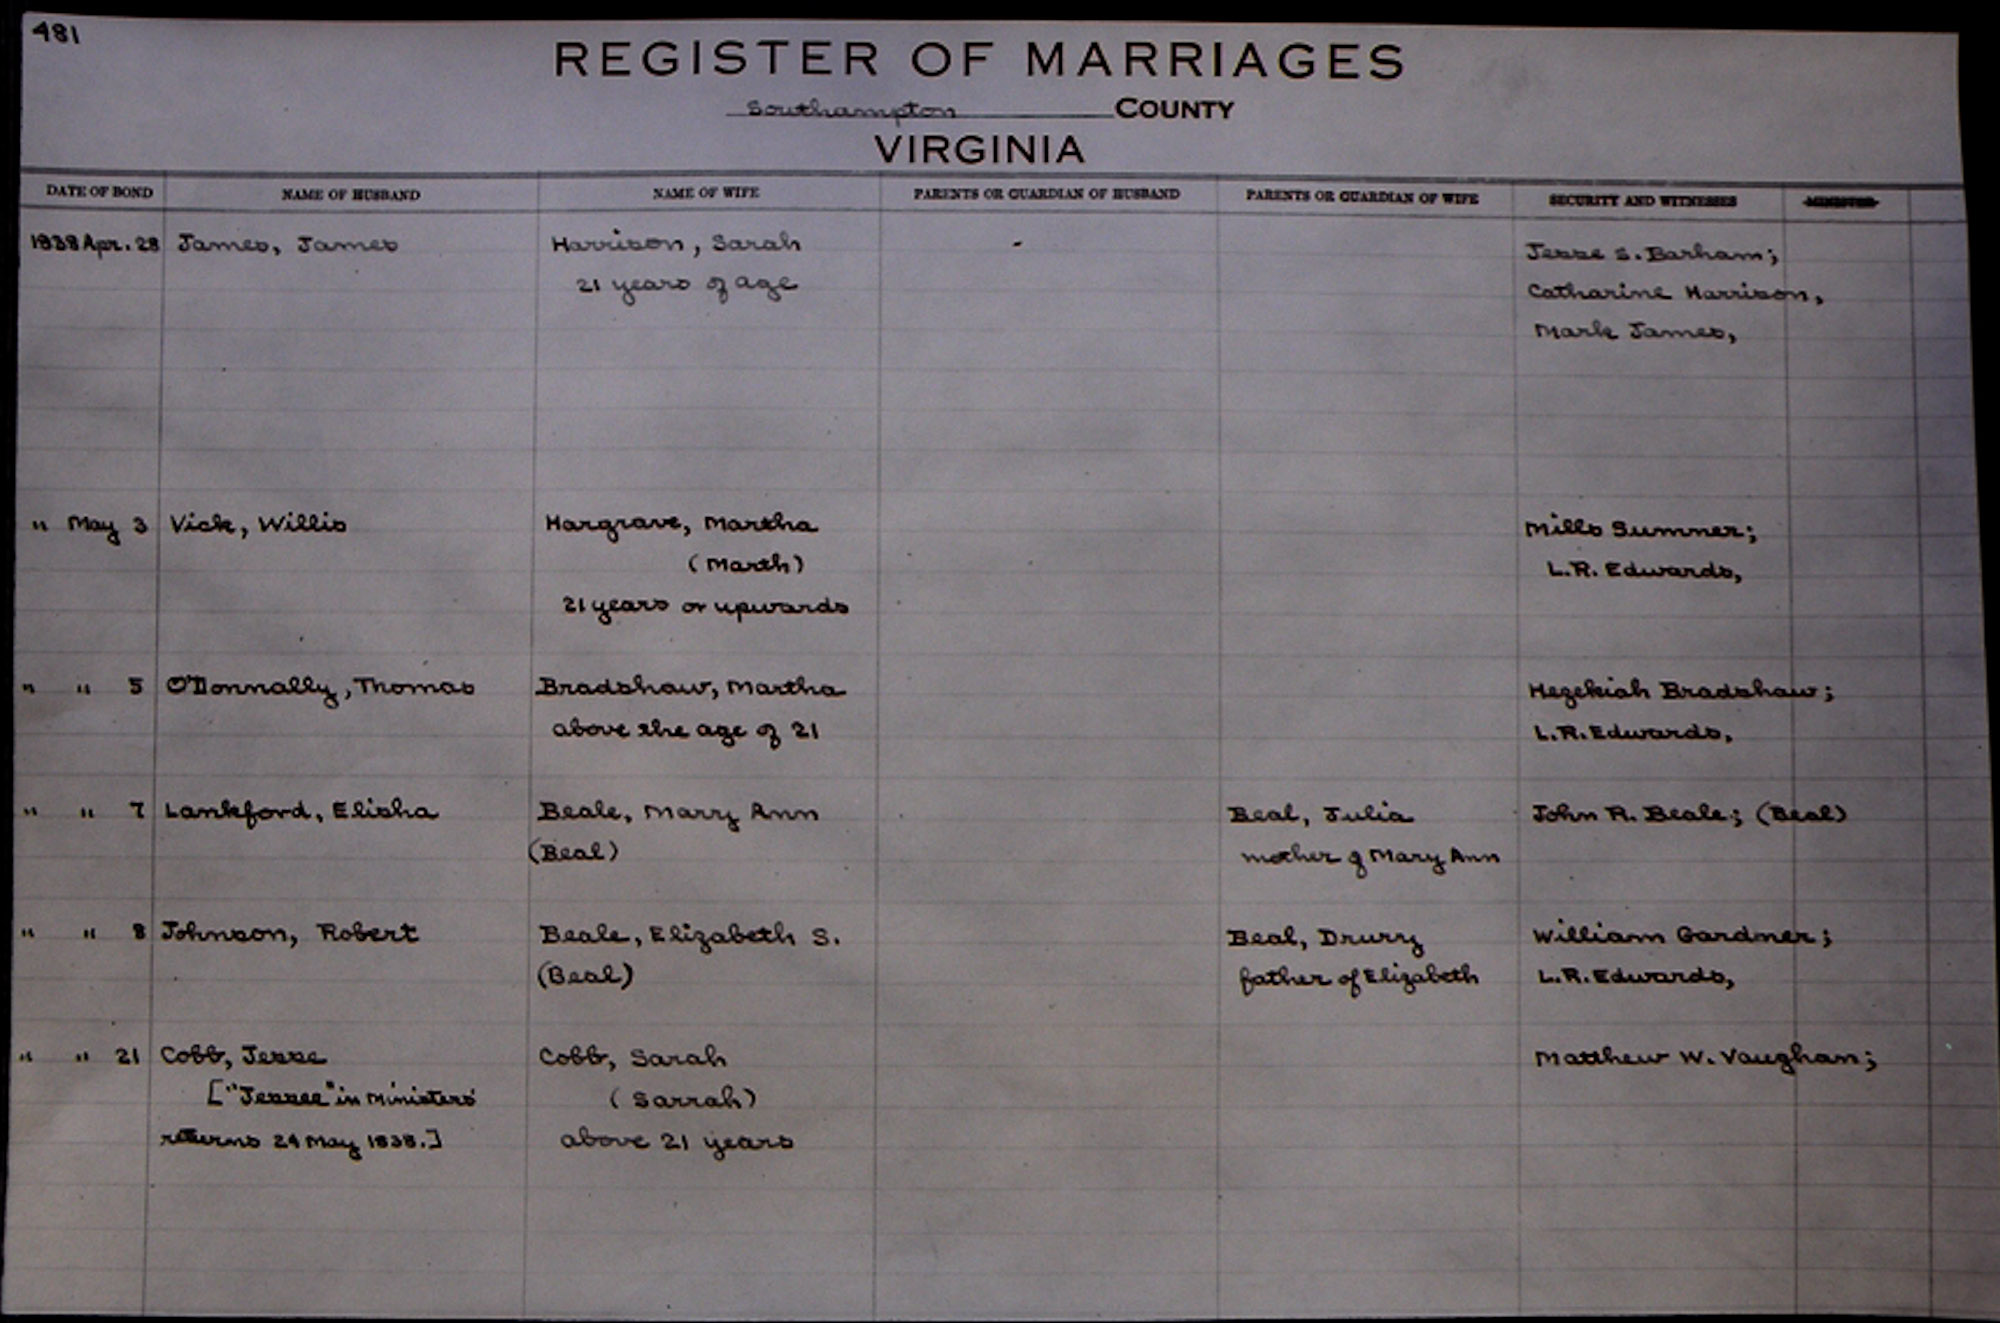 481
REGISTER OF MARRIAGES
Southampton COUNTY
VIRGINIA
DATE OF BOND NAME OF HUSBAND NAME OF WIFE PARENTS OR GUARDIAN OF HUSBAND PARENTS OR GUARDIAN OF WIFE SECURITY AND WITNESSES MINISTER
1838 Apr. 28 James, James Harrison, Sarah - Jesse S. Barham;
21 years of age Catharine Harrison,
Mark James,
" May 3 Vick, Willis Hargrave, Martha Mills Sumner;
(Marth) L.R. Edwards,
21 years or upwards
" " 5 O'Donnally, Thomas Bradshaw, Martha Hezekiah Bradshaw;
above the age of 21 L.R. Edwards,
" " 7 Lankford, Elisha Beale, Mary Ann Beal, Julia John R. Beale; (Beal)
(Beal) mother of Mary Ann
" " 8 Johnson, Robert Beale, Elizabeth S. Beal, Drury William Gardner;
(Beal) father of Elizabeth L.R. Edwards,
" " 21 Cobb, Jesse Cobb, Sarah Matthew W. Vaughan;
["Jessee" in Ministers' (Sarrah)
returns 24 May 1838.] above 21 years